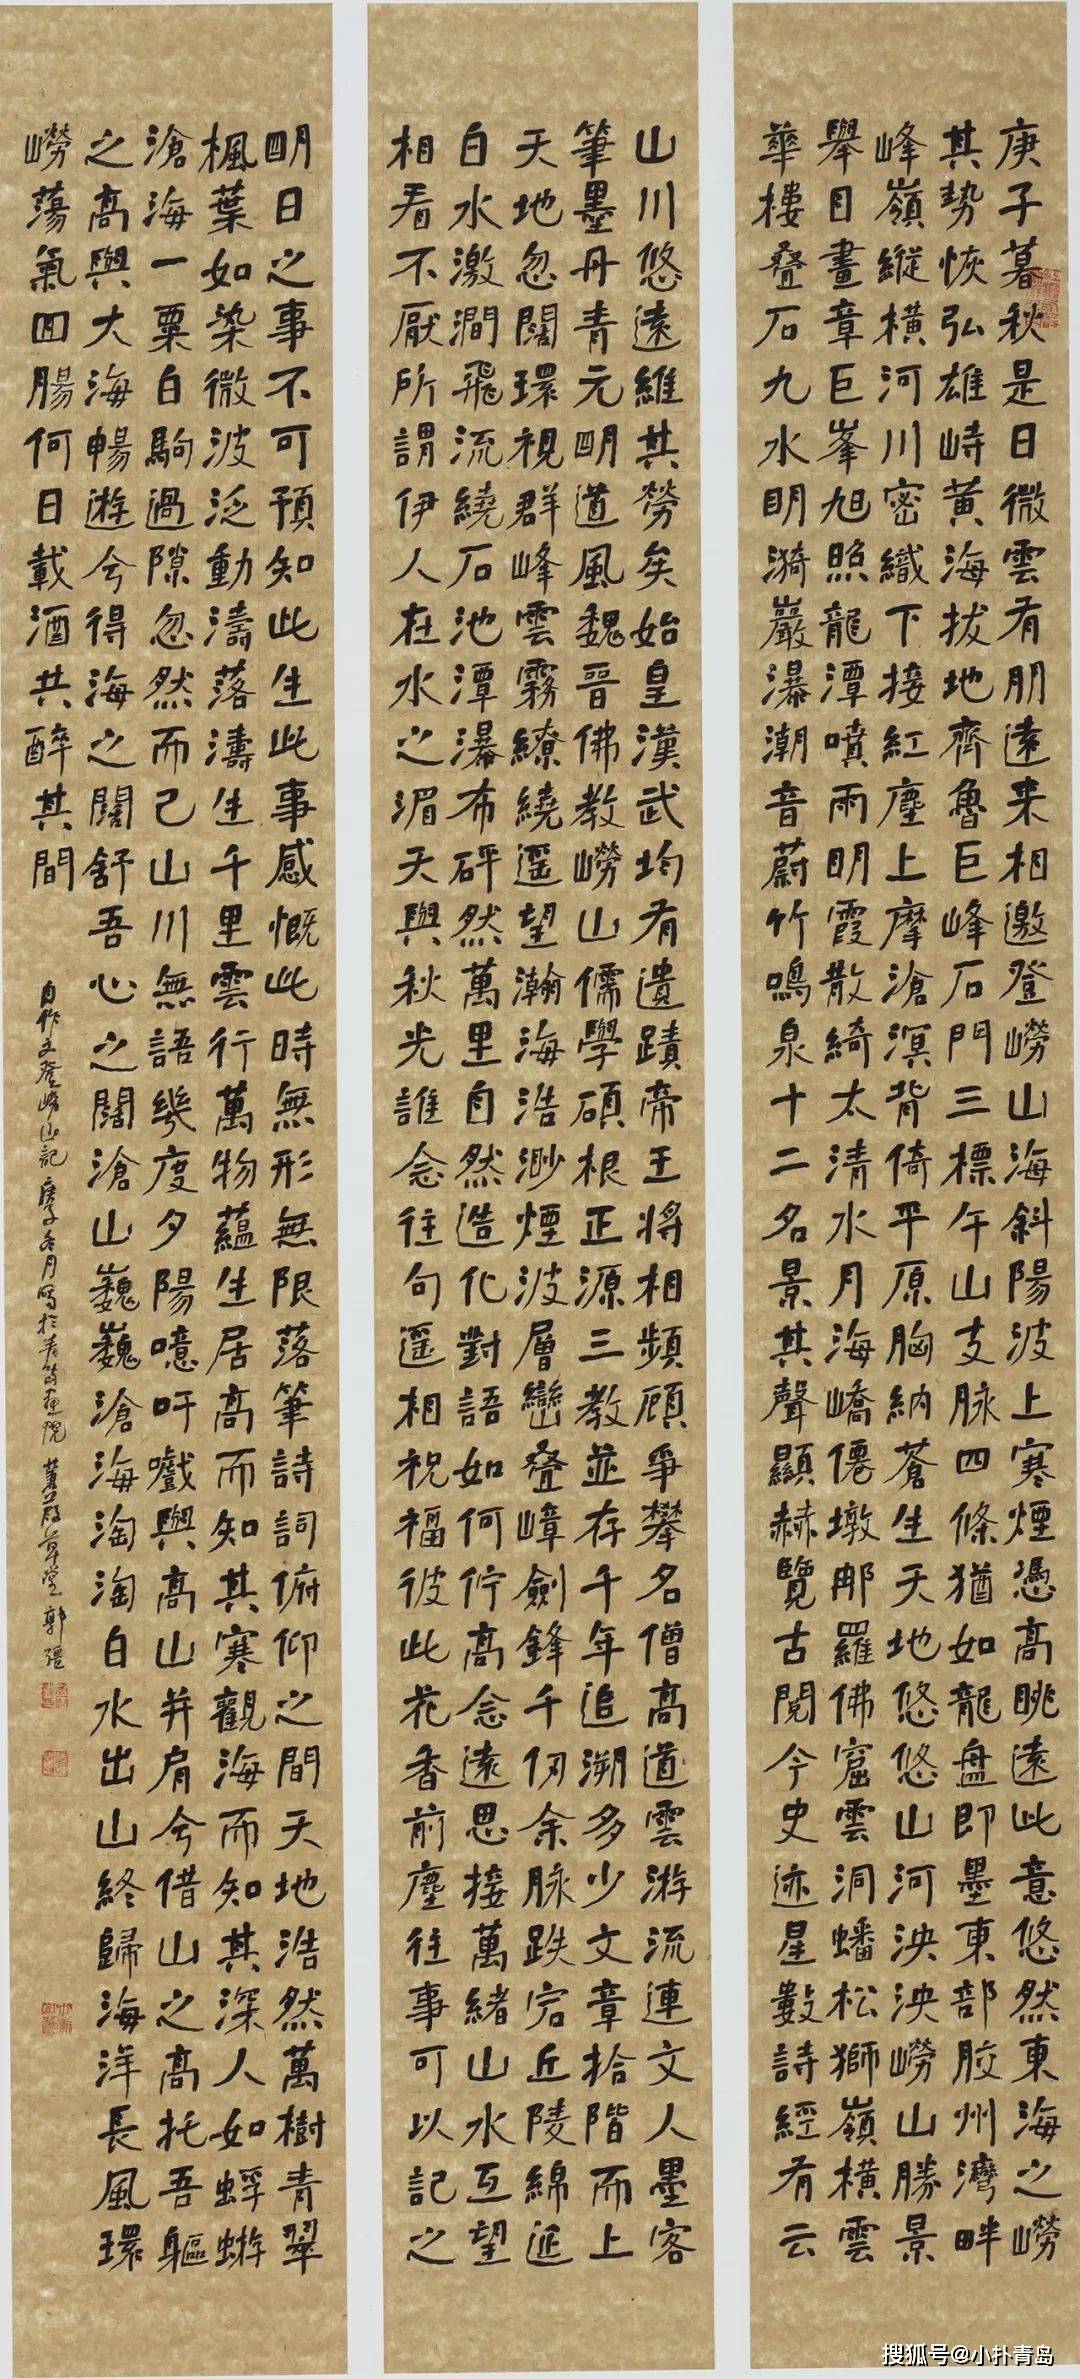 庚子暮秋是日微雲有朋遠来相邀登嶗山海斜陽波上寒煙憑高眺遠此意悠然東海之嶗
其勢恢弘雄峙黃海拔地齊魯巨峰石門三標午山支脉四條猶如龍盤即墨東部胶州灣畔
峰嶺縱橫河川密織下接紅塵上摩滄溟背倚平原胸納蒼生天地悠悠山河泱泱嶗山勝景
舉目畫章巨峯旭照龍潭噴雨明霞散綺太清水月海嶠僊墩那羅佛窟雲洞蟠松獅嶺橫雲
華樓疊石九水明漪巖瀑潮音蔚竹鳴泉十二名景其聲顯赫覽古閱今史迹星數詩經有云
山川悠遠維其勞矣始皇漢武均有遺蹟帝王將相頻顧爭攀名僧高道雲游流連文人墨客
筆墨丹青元明道風魏晉佛教嶗山儒學碩根正源三教並存千年追溯多少文章拾階而上
天地忽闊環視群峰雲霧繚繞遥望瀚海浩渺煙波層巒疊嶂劍鋒千仞余脉跌宕丘陵綿延
白水激澗飛流繞石池潭瀑布砰然萬里自然造化對語如何佇高念遠思接萬緒山水互望
相看不厭所謂伊人在水之湄天與秋光誰念往句遥相祝福彼此花香前塵往事可以記之
明日之事不可預知此生此事感慨此時無形無限落筆詩詞俯仰之間天地浩然萬樹青翠
楓葉如染微波泛動濤落濤生千里雲行萬物蘊生居高而知其寒觀海而知其深人如蜉蝣
滄海一粟白駒過隙忽然而已山川無語幾度夕陽噫吁戲與高山并肩兮借山之高托吾軀
之高與大海暢遊兮得海之闊舒吾心之闊滄山巍巍滄海淘淘白水出山終歸海洋長風環
嶗蕩氣回腸何日載酒共醉其間
自作文登嶗山記 庚子冬月寫於青島畫院 草堂 郭強
搜狐号@小扑青岛